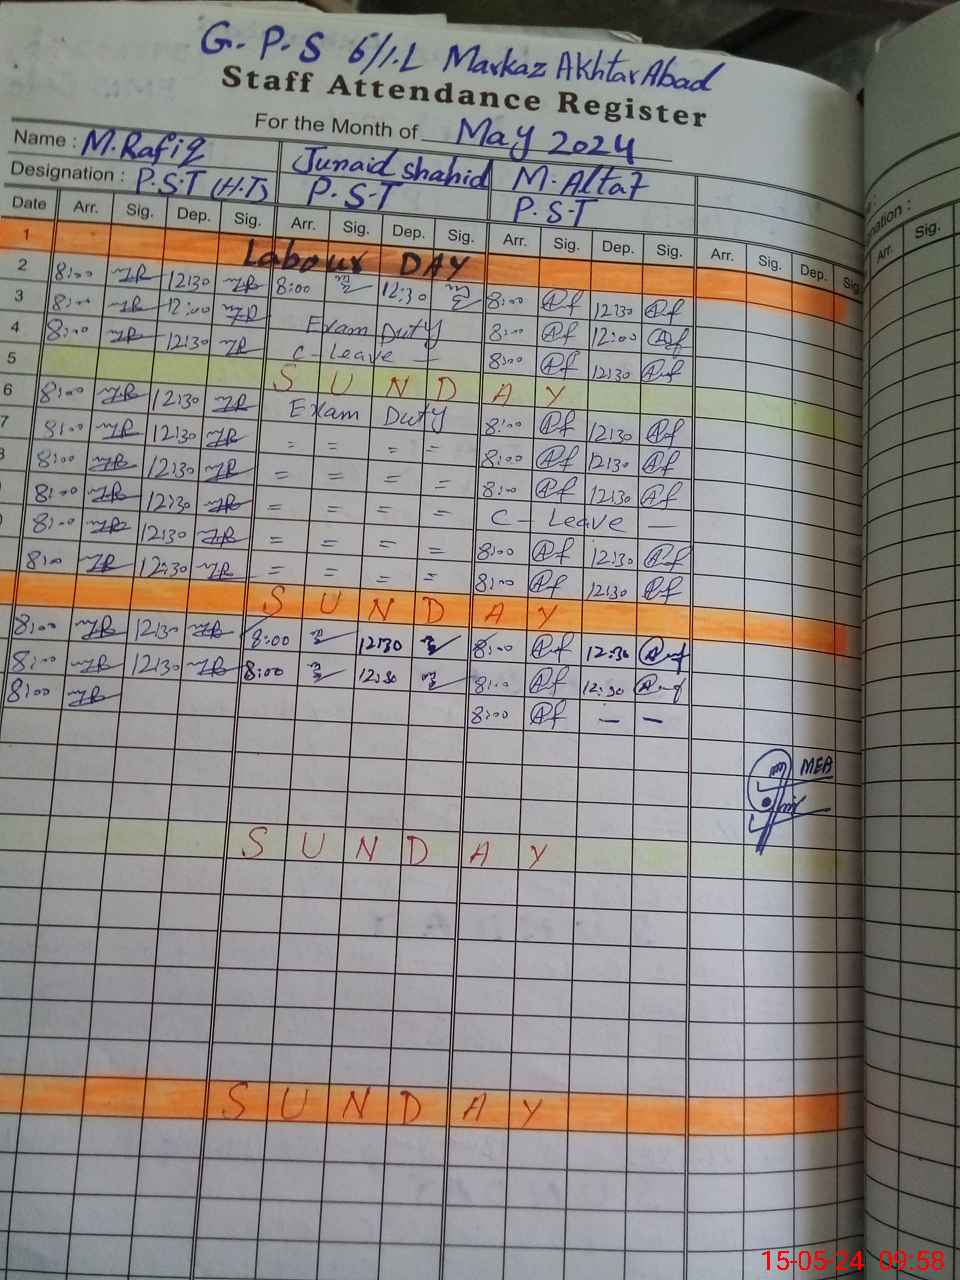 G.P.S 6/1.L Markaz AkhtarAbad
Staff Attendance Register
For the Month of May 2024
Name : M.Rafiq Junaid shahid M.Altaf
Designation : P.S.T (H.T) P.S.T P.S.T
Date Arr. Sig. Dep. Sig. Arr. Sig. Dep. Sig. Arr. Sig. Dep. Sig. Arr. Sig. Dep. Sig.
1 Labour DAY
2 8:00 12:30 8:00 12:30 8:00 12:30
3 8:00 12:00 Exam Duty 8:00 12:00
4 8:00 12:30 C-Leave - 8:00 12:30
5 S U N D A Y
6 8:00 12:30 Exam Duty 8:00 12:30
7 8:00 12:30 = = = = 8:00 12:30
8:00 12:30 = = = = 8:00 12:30
8:00 12:30 = = = = C - Leave -
8:00 12:30 = = = = 8:00 12:30
8:00 12:30 = = = = 8:00 12:30
S U N D A Y
8:00 12:30 8:00 12:30 8:00 12:30
8:00 12:30 8:00 12:30 8:00 12:30
8:00 8:00 - -
MEA
S U N D A Y
S U N D A Y
Arr. Sig.
15-05-24 09:58